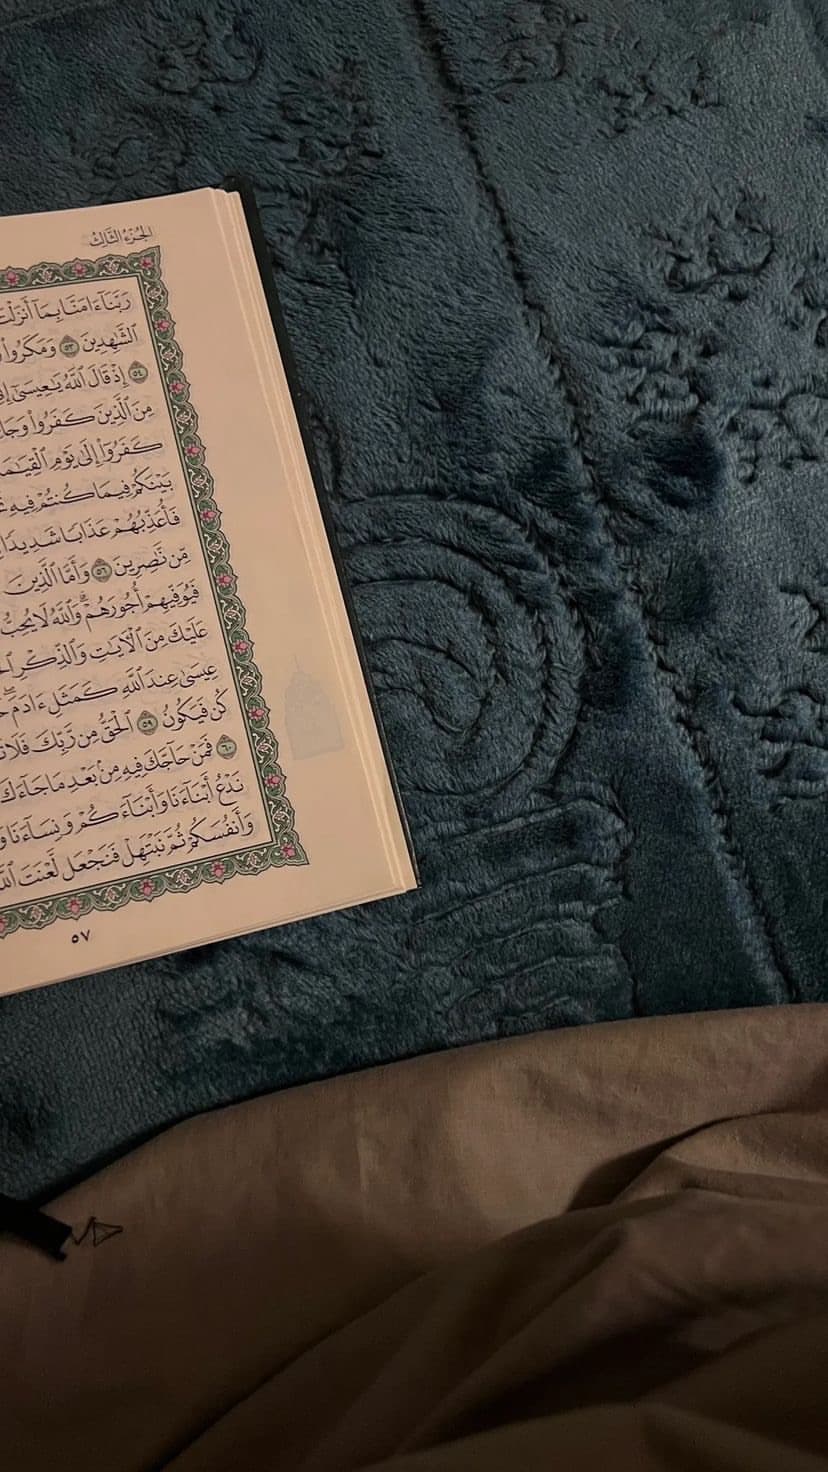 الجزء الثالث
رَبَّنَآ ءَامَنَّا بِمَآ أَنزَلْتَ
ٱلشَّٰهِدِينَ ٥٣ وَمَكَرُوا۟
٥٤ إِذْ قَالَ ٱللَّهُ يَٰعِيسَىٰٓ
مِنَ ٱلَّذِينَ كَفَرُوا۟
كَفَرُوٓا۟ إِلَىٰ يَوْمِ ٱلْقِيَٰمَةِ
بَيْنَكُمْ فِيمَا كُنتُمْ فِيهِ
فَأُعَذِّبُهُمْ عَذَابًا شَدِيدًا
مِّن نَّٰصِرِينَ ٥٦ وَأَمَّا ٱلَّذِينَ
فَيُوَفِّيهِمْ أُجُورَهُمْ ۗ وَٱللَّهُ لَا يُحِبُّ
عَلَيْكَ مِنَ ٱلْءَايَٰتِ وَٱلذِّكْرِ
عِيسَىٰ عِندَ ٱللَّهِ كَمَثَلِ ءَادَمَ ۖ
كُن فَيَكُونُ ٥٩ ٱلْحَقُّ مِن رَّبِّكَ فَلَا
٦٠ فَمَنْ حَآجَّكَ فِيهِ مِنۢ بَعْدِ مَا جَآءَكَ
نَدْعُ أَبْنَآءَنَا وَأَبْنَآءَكُمْ وَنِسَآءَنَا
وَأَنفُسَكُمْ ثُمَّ نَبْتَهِلْ فَنَجْعَل لَّعْنَتَ
٥٧